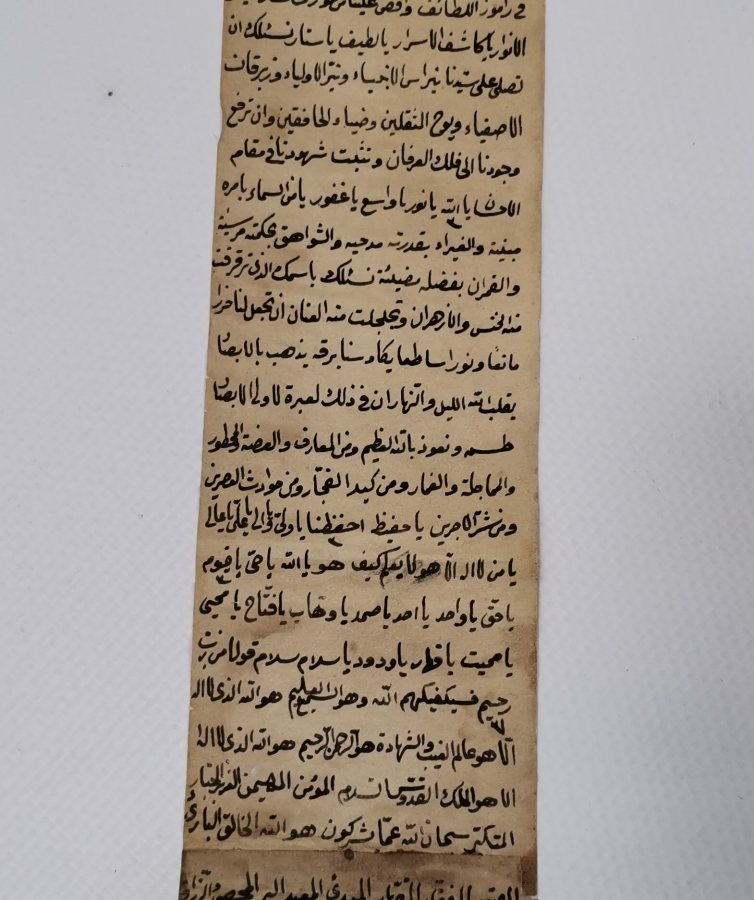 في راموز اللطائف وافض علينا من
الانوار يا كاشف الاسرار يا لطيف يا ستار نسئلك ان
تصلى على سيدنا نبراس الانبياء ونير الاولياء وزبرقان
الاصفياء ويوح الثقلين وضياء الخافقين وان ترفع
وجودنا الى فلك العرفان وتثبت شهودنا في مقام
الاحسان يا الله يا نور يا واسع يا غفور يا من السماء بامره
مبنية والغبراء بقدرته مدحيه والشواهق بحكمته مرسية
والقمران بفضله مضيئة نسئلك باسمك الذى ترقرقت
منه الخنس والازهران وتجلجلت منه العنان ان تجعل لنا حرزا
مانعا ونورا ساطعا يكاد سنا برقه يذهب بالابصار
يقلب الله الليل والنهار ان في ذلك لعبرة لاولى الابصار
طسم ونعوذ بالله العظيم ومن المعارف
والمماحلة ومن كيد الفجار ومن حوادث العصرين
ومن شر الاجرين يا حفيظ احفظنا يا ولى يا والى يا على يا عالى
يا من لا اله الا هو لا يعلم كيف هو يا الله يا حى يا قيوم
يا حق يا واحد يا احد يا صمد يا وهاب يا فتاح يا محيى
يا مميت يا قهار يا ودود يا سلام سلام قولا من رب
رحيم فسيكفيكهم الله وهو السميع العليم هو الله الذى لا اله
الا هو عالم الغيب والشهادة هو الرحمن الرحيم هو الله الذى لا اله
الا هو الملك القدوس السلام المؤمن المهيمن العزيز الجبار
المتكبر سبحان الله عما يشركون هو الله الخالق البارئ